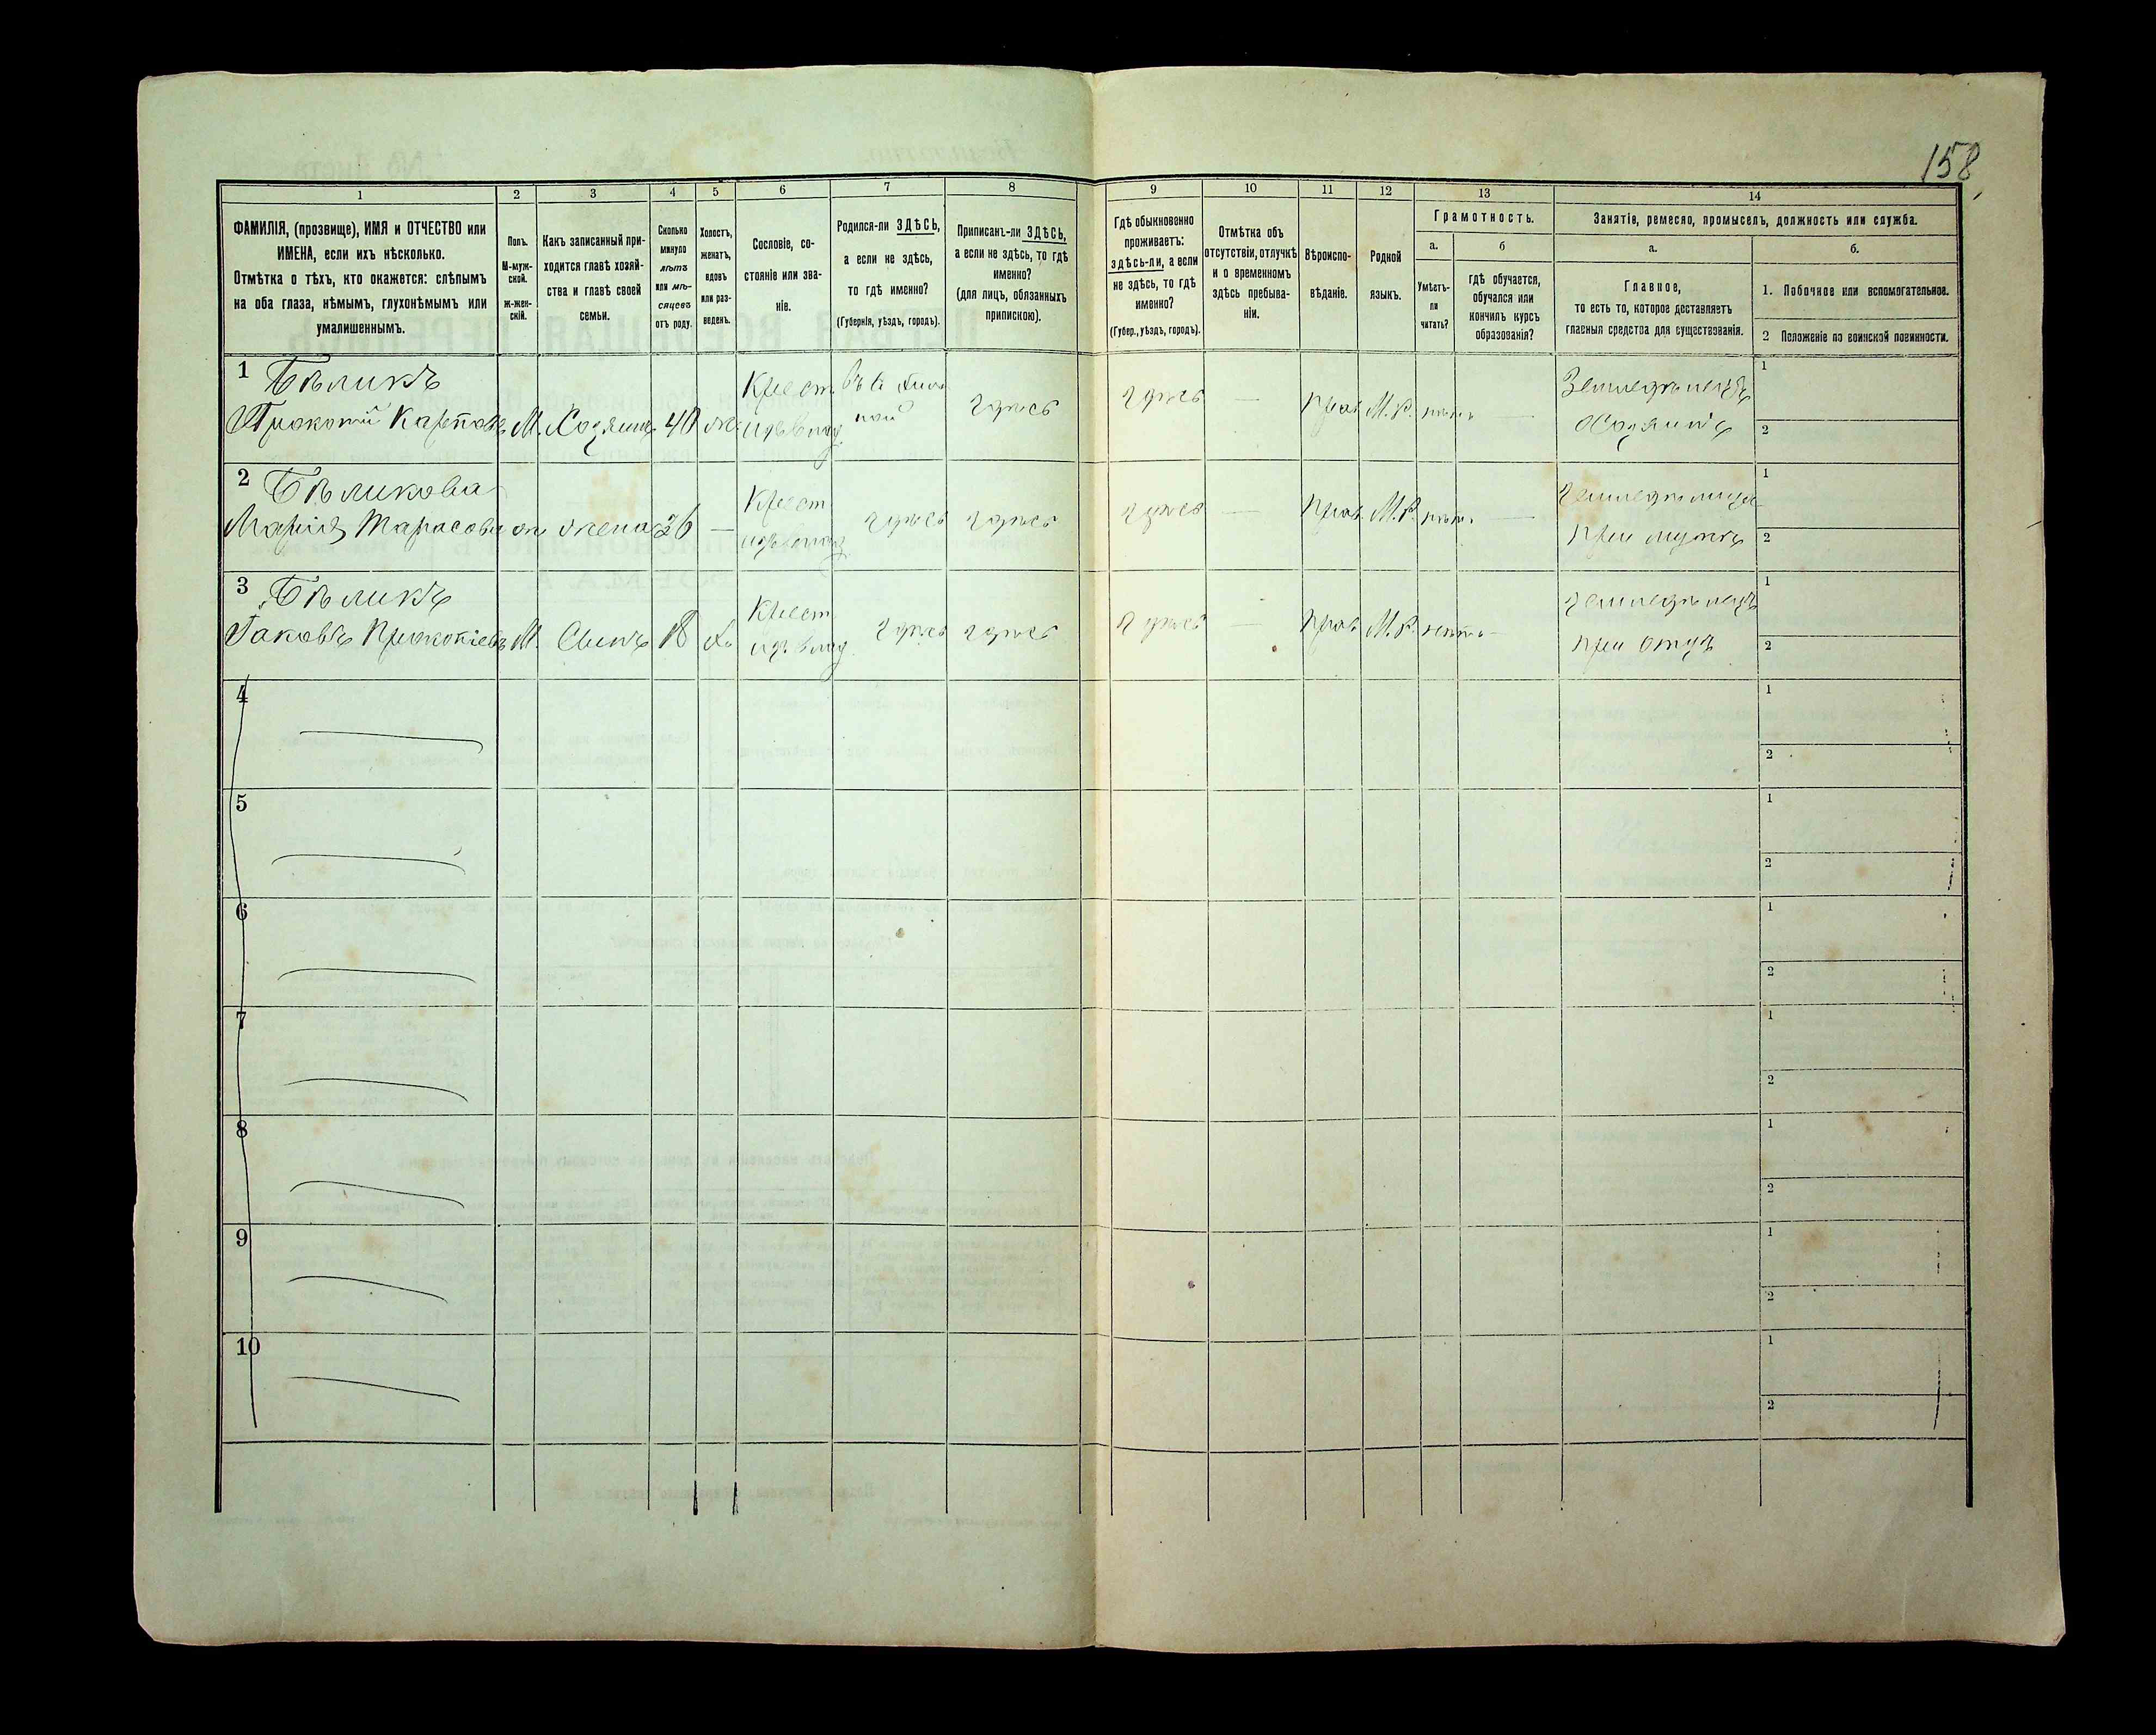 158
1
2
3
4
5
6
7
8
9
10
11
12
13
14
ФАМИЛІЯ, (прозвище), ИМЯ и ОТЧЕСТВО или
ИМЕНА, если ихъ нѣсколько.
Отмѣтка о тѣхъ, кто окажется: слѣпымъ
на оба глаза, нѣмымъ, глухонѣмымъ или
умалишеннымъ.
Полъ.
М-муж-
ской.
Ж-жен-
скій.
Какъ записанный при-
ходится главѣ хозяй-
ства и главѣ своей
семьи.
Сколько
минуло
лѣтъ
или мѣ-
сяцевъ
отъ роду.
Холостъ,
женатъ,
вдовъ
или раз-
веденъ.
Сословіе, со-
стояніе или зва-
ніе.
Родился-ли ЗДѢСЬ,
а если не здѣсь,
то гдѣ именно?
(Губернія, уѣздъ, городъ).
Приписанъ-ли ЗДѢСЬ,
а если не здѣсь, то гдѣ
именно?
(для лицъ, обязанныхъ
припискою).
Гдѣ обыкновенно
проживаетъ:
здѣсь-ли, а если
не здѣсь, то гдѣ
именно?
(Губер., уѣздъ, городъ).
Отмѣтка объ
отсутствіи, отлучкѣ
и о временномъ
здѣсь пребыва-
ніи.
Вѣроиспо-
вѣданіе.
Родной
языкъ.
Грамотность.
а.
Умѣетъ-
ли
читать?
б
гдѣ обучается,
обучался или
кончилъ курсъ
образованія?
Занятіе, ремесло, промыселъ, должность или служба.
а.
Главное,
то есть то, которое доставляетъ
главныя средства для существованія.
б.
1. Побочное или вспомогательное.
2 Положеніе по воинской повинности.
1 Бѣликъ
Прокопій Карповъ М. Хозяинъ 40 ж.
Крест.
здѣсь здѣсь — прав. М.Р. нѣтъ —
Земледѣлецъ
Хозяинъ
1
2
2 Бѣликова
Марія Тарасова ж жена 36 —
Крест.
здѣсь здѣсь здѣсь — прав. М.Р. нѣтъ —
земледѣлица
при мужѣ
1
2
3 Бѣликъ
Іаковъ Прокопіевъ М. Сынъ 18 х.
Крест.
здѣсь здѣсь здѣсь — прав. М.Р. нѣтъ —
земледѣлецъ
при отцѣ
1
2
4
1
2
5
1
2
6
1
2
7
1
2
8
1
2
9
1
2
10
1
2